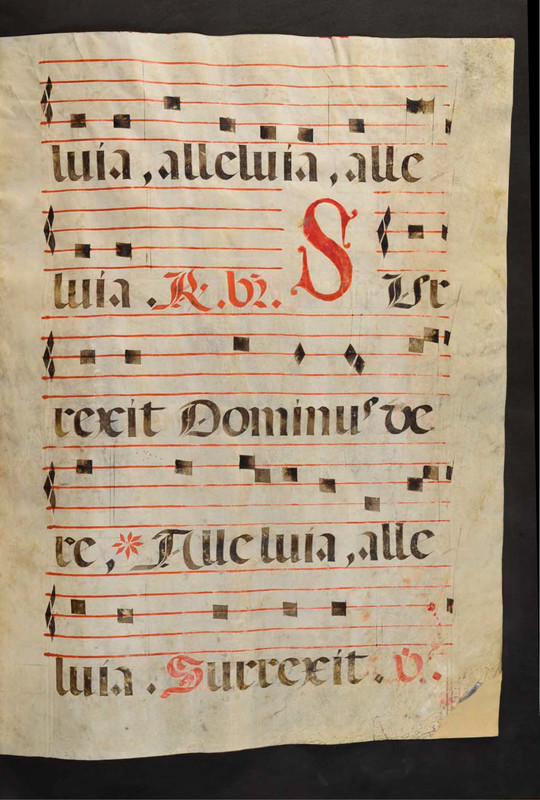 luia, alleluia, alle
luia. R. br. S Ur
rexit Dominus ve
re, * Alleluia, alle
luia. Surrexit. V.